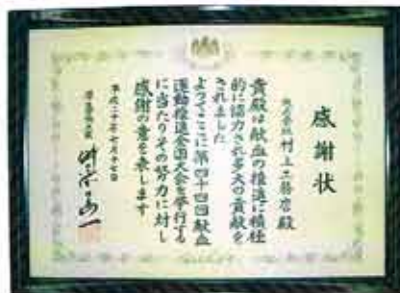 感謝状
株式会社村上工務店殿
貴殿は献血の推進に積極
的に協力され多大の貢献を
されました
よってここに第四十四回献血
運動推進全国大会を挙行する
に当たりその努力に対し
感謝の意を表します
平成二十年七月十七日
厚生労働大臣
舛添要一